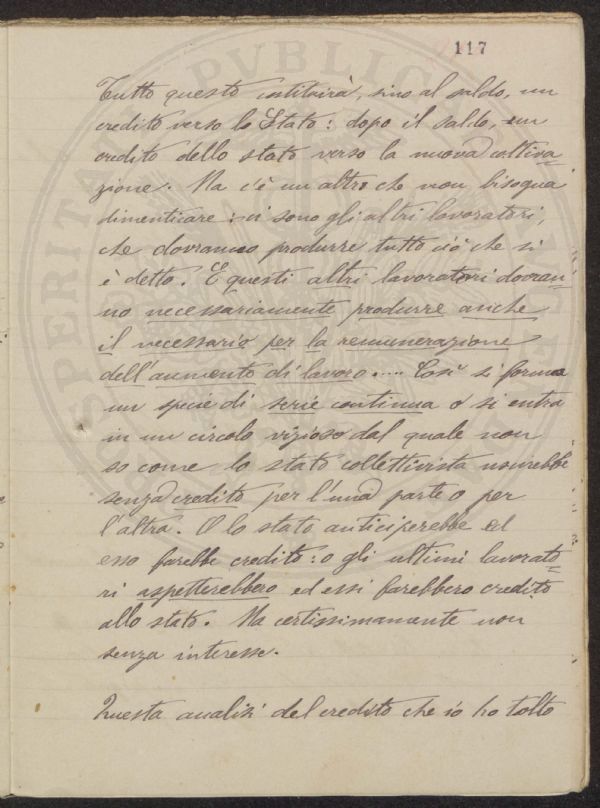 117
Tutto questo costituirà, sino al saldo, un
credito verso lo Stato: dopo il saldo, un
credito dello stato verso la nuova coltiva=
zione. Ma c'è un altro che non bisogna
dimenticare: vi sono gli altri lavoratori,
che dovranno produrre tutto ciò che si
è detto. E questi altri lavoratori dovran=
no necessariamente produrre anche
il necessario per la remunerazione
dell'aumento di lavoro.... Così si forma
un specie di serie continua o si entra
in un circolo vizioso dal quale non
so come lo stato collettivista uscirebbe
senza credito per l'una parte o per
l'altra. O lo stato anticiperebbe ed
esso farebbe credito: o gli ultimi lavorato=
ri aspetterebbero ed essi farebbero credito
allo stato. Ma certissimamente non
senza interesse.
Questa analisi del credito che io ho tolto